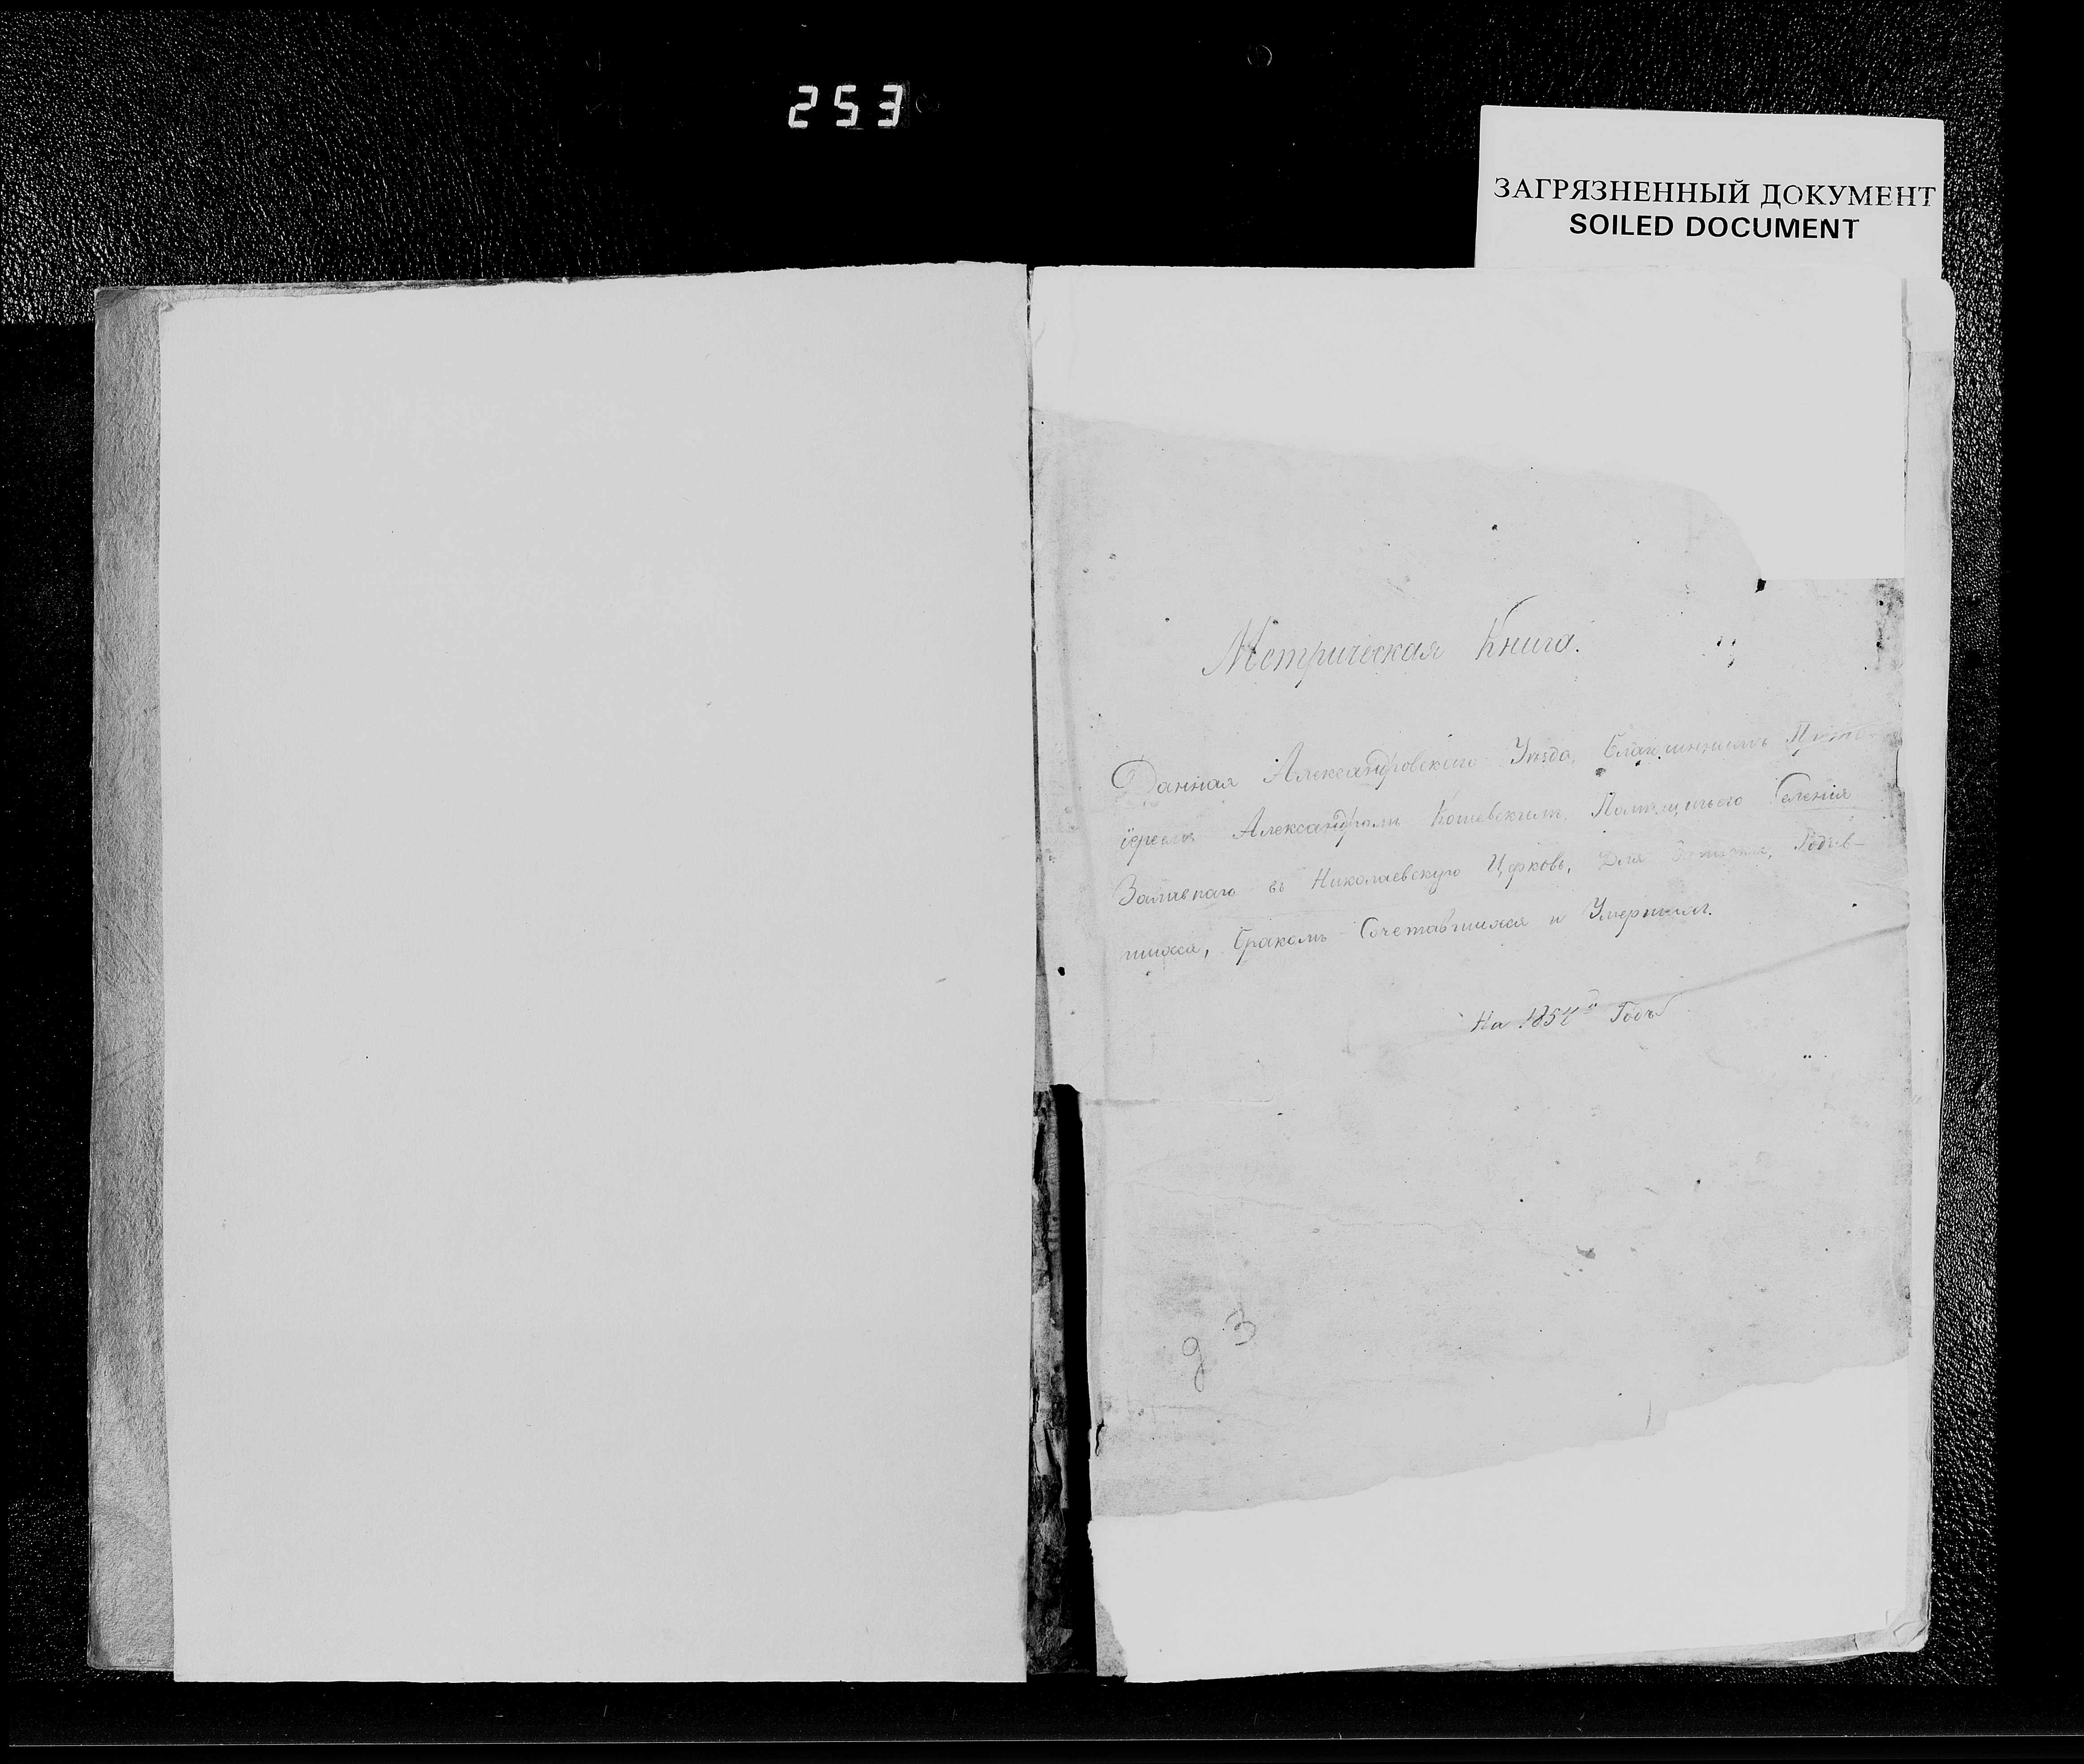 253
ЗАГРЯЗНЕННЫЙ ДОКУМЕНТ
SOILED DOCUMENT
Метрическая Книга.
Данная Александровского Уѣзда, Благочиннымъ Прото-
іереемъ Александромъ Кошевскимъ, Помѣщичьего Селенія
въ Николаевскую Церковь, для Записки, Родив-
шихся, Бракомъ Сочетавшихся и Умершихъ.
На 1854й Годъ
д 3